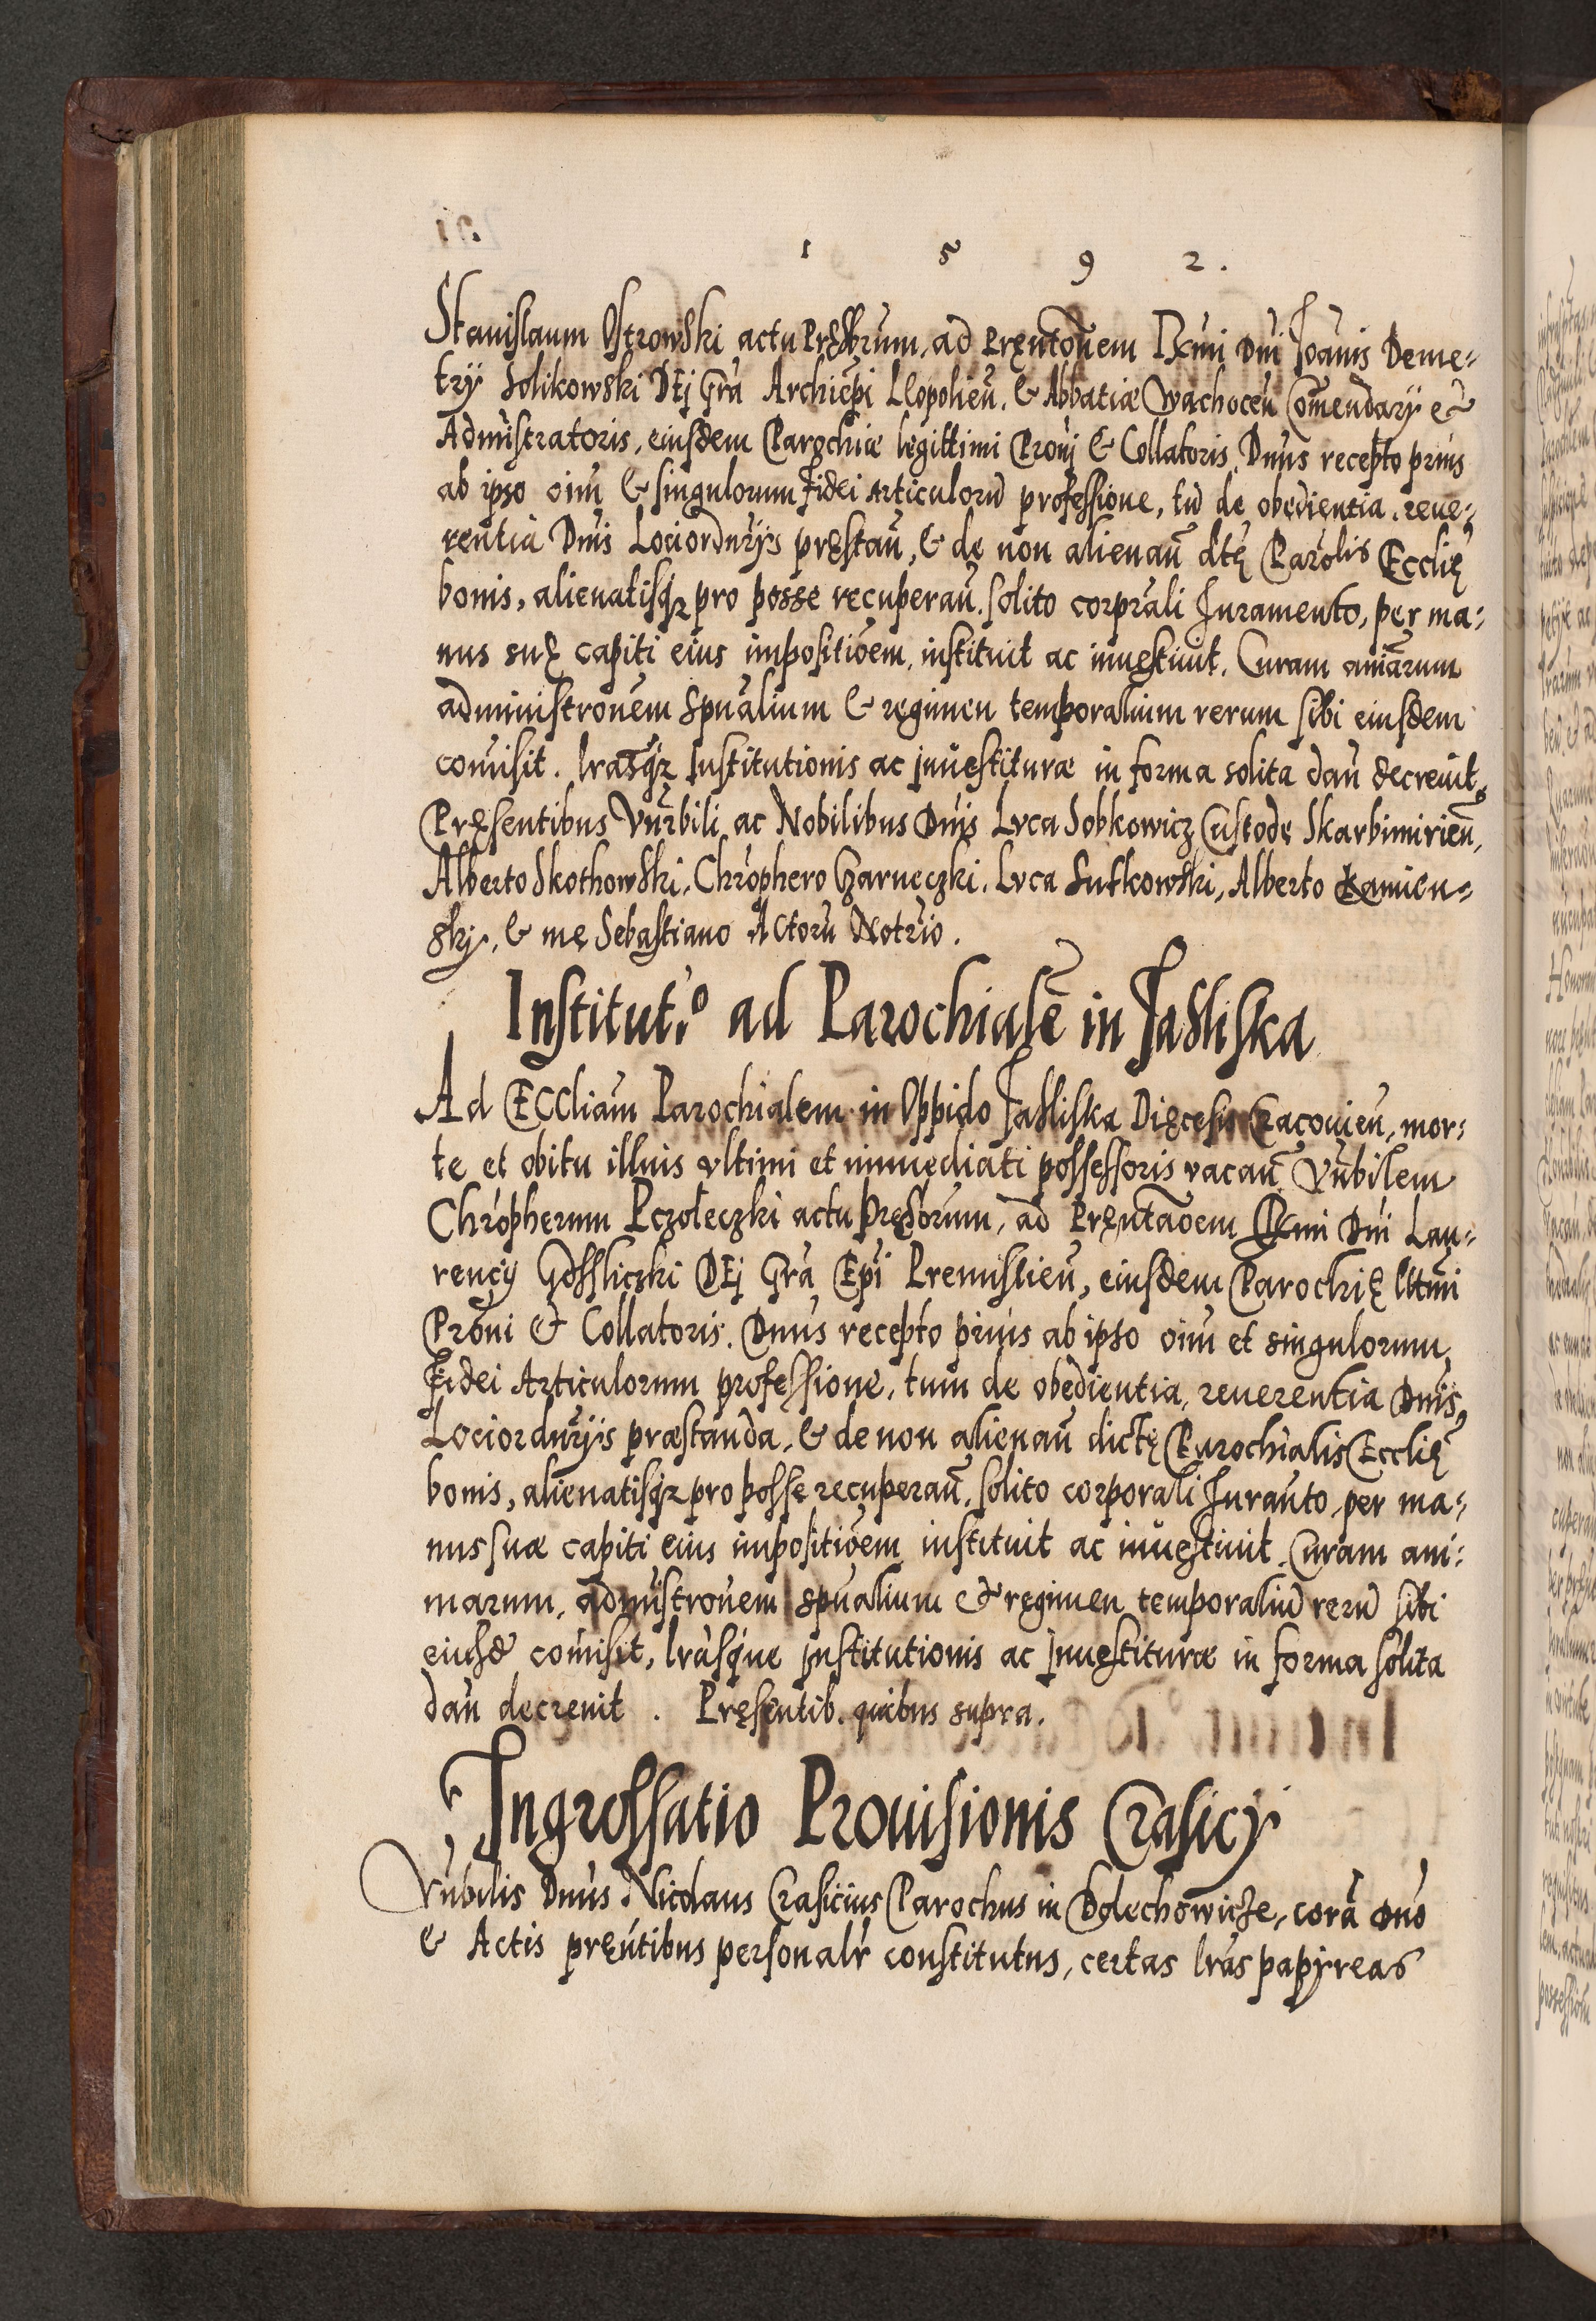 1 5 9 2.
Stanislaum Ostrowski actu Pręsbrum, ad Pręntōnem Rx̄mi Dni Joānis Deme⸗
trÿ Solikowski DEj Grā Archiēpi Lēopolien̄. & Abbatiæ Wachocen̄ Com̄endarÿ et
Admīstratoris, eiusdem Parochiæ legittimi Pronj & Collatoris, Dnūs recepto prius
ab ipso oīm & singulorum Fidei Articulorū professione, tū de obedientia, reue⸗
rentia Dnīs Lociordnrÿs pręstan̄, & de non alienan̄ dtę Parōlis Ecclię
bonis, alienatisqꝫ pro posse recuperan̄. solito corprāli Juramento, per ma⸗
nus suę capiti eius impositiōem, instituit ac inuestiuit. Curam aniārum
administronem Spūalium & regimen temporalium rerum sibi eiusdem
comīsit. lrāsqꝫ Institutionis ac jnuestituræ in forma solita dan̄ decreuit,
Pręsentibus Vnrbili ac Nobilibus Dnīs Lvca Sobkowicz Custode Skarbimirien̄,
Alberto Skothowski, Chrōphero Czarneczki, Lvca Sutkowski, Alberto Kamien⸗
skj, & me Sebastiano Actorū Notrio.
Institut.º ad Parochialē in Jasliska
Ad ECCliam Parochialem in Oppido Jasliska Dięcesis Cracouien̄, mor⸗
te et obitu illius vltimi et immediati possessoris vacan̄ Vnbilem
Chrōpherum Pczołeczki actu Pręsbrum, ad Pręntaōem Rx̄mi Dni Lau⸗
rencÿ Gossliczki DEj Grā Epi Premislien̄, eiusdem Parochię lttmi
Prōni & Collatoris. Dnūs recepto prius ab ipso oīm et singulorum
Fidei Articulorum professione, tum de obedientia, reuerentia Dnīs,
Lociordnrÿs præstanda, & de non alienan̄ dictę Parochialis Ecclię
bonis, alienatisqꝫ pro posse recuperan̄. solito corporali Juranto per ma⸗
nus suæ capiti eius impositiōem instituit ac inuestiuit. Curam ani⸗
marum, admīstronem spūalium & regimen temporaliū rerū sibi
eiusd̄ comīsit, lrāsque jnstitutionis ac jnuestituræ in forma solita
dan̄ decreuit. Pręsentib. quibus supra.
Ingrossatio Prouisionis Crasicj
Vnbilis Dnūs Nicolaus Crasicius Parochus in Bolechowicze, corā Dnō
& Actis pręntibus personalr constitutus, certas lrās papÿreas